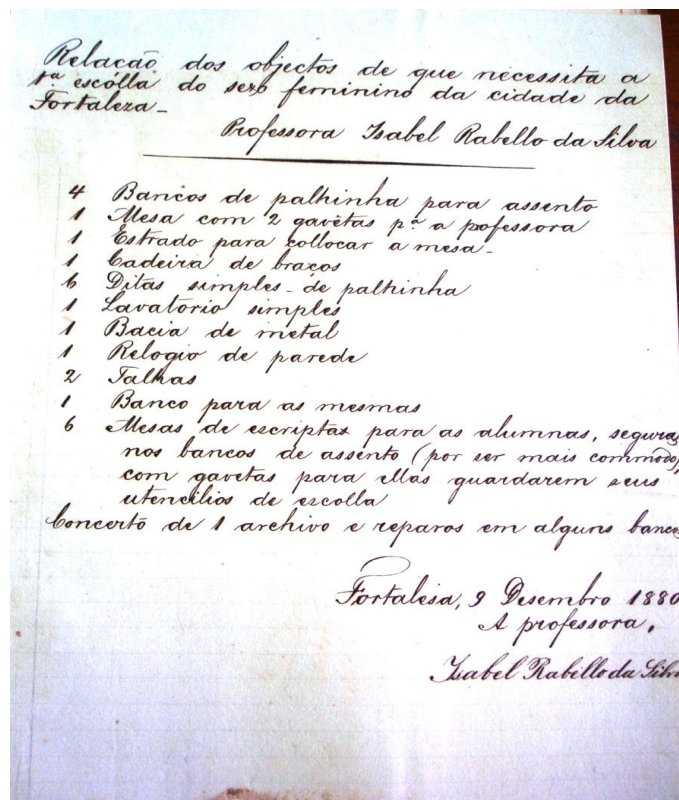 Relação dos objectos de que necessita a
1ª escólla do sexo feminino da cidade da
Fortaleza_
Professora Isabel Rabello da Silva
4 Bancos de palhinha para assento
1 Mesa com 2 gavêtas pª a professora
1 Estrado para collocar a mesa_
1 Cadeira de braços
6 Ditas simples_de palhinha
1 Lavatorio simples
1 Bacia de metal
1 Relogio de parede
2 Talhas
1 Banco para as mesmas
6 Mesas de escripta para as alumnas, seguras
nos bancos de assento (por ser mais commodo)
com gavetas para ellas guardarem seus
utencilios de escolla
Concerto de 1 archivo e reparos em alguns bancos
Fortalesa, 9 Desembro 1880
A professora,
Isabel Rabello da Silva